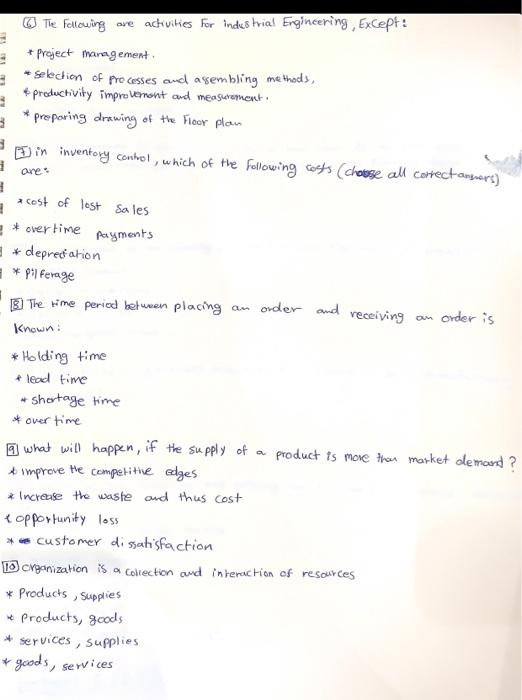 ⑥ The following are activities For industrial Engineering, Except:
* project management.
* selection of processes and assembling methods,
* productivity improvement and measurement.
* preparing drawing of the Floor plan
7 in inventory control, which of the following costs (choose all correct answers)
are:
* cost of lost sales
* overtime payments
* depreciation
* pilferage
8 The time period between placing an order and receiving an order is
Known:
* Holding time
* lead time
* shortage time
* over time
9 what will happen, if the supply of a product is more than market demand?
* improve the competitive edges
* Increase the waste and thus cost
* opportunity loss
* customer dissatisfaction
10 organization is a collection and interaction of resources
* Products, supplies
* products, goods
* services, supplies
* goods, services